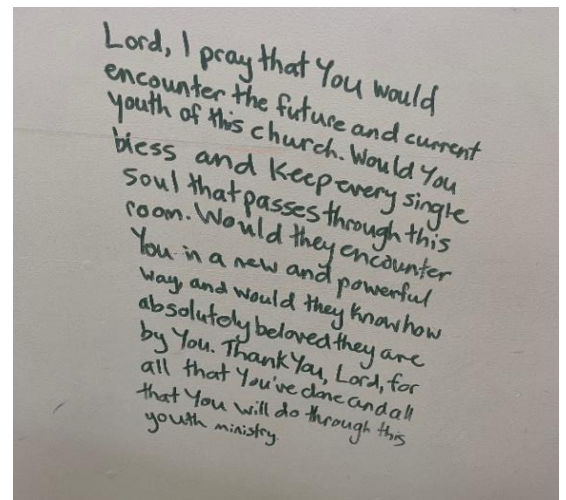 Lord, I pray that You would
encounter the future and current
youth of this church. Would You
bless and keep every single
soul that passes through this
room. Would they encounter
You in a new and powerful
way, and would they know how
absolutely beloved they are
by You. Thank You, Lord, for
all that You've done and all
that You will do through this
youth ministry.